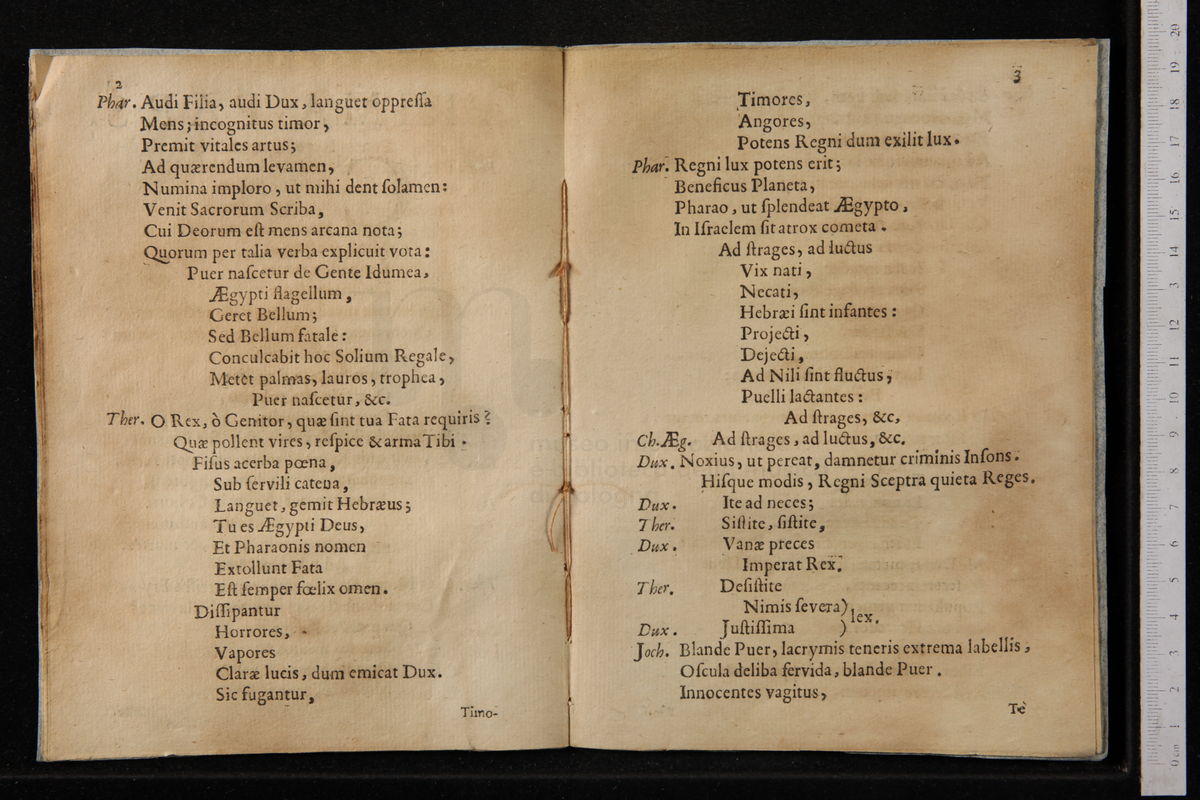 2
Phar. Audi Filia, audi Dux, languet oppreſſa
Mens; incognitus timor,
Premit vitales artus;
Ad quærendum levamen,
Numina imploro, ut mihi dent ſolamen:
Venit Sacrorum Scriba,
Cui Deorum eſt mens arcana nota;
Quorum per talia verba explicuit vota:
Puer naſcetur de Gente Idumea,
Ægypti flagellum,
Geret Bellum;
Sed Bellum fatale:
Conculcabit hoc Solium Regale,
Metet palmas, lauros, trophea,
Puer naſcetur, &c.
Ther. O Rex, ò Genitor, quæ ſint tua Fata requiris?
Quæ pollent vires, reſpice & arma Tibi.
Fiſus acerba pœna,
Sub ſervili catena,
Languet, gemit Hebræus;
Tu es Ægypti Deus,
Et Pharaonis nomen
Extollunt Fata
Eſt ſemper fœlix omen.
Diſſipantur
Horrores,
Vapores
Claræ lucis, dum emicat Dux.
Sic fugantur,
Timo-
3
Timores,
Angores,
Potens Regni dum exilit lux.
Phar. Regni lux potens erit;
Beneficus Planeta,
Pharao, ut ſplendeat Ægypto,
In Iſraelem ſit atrox cometa.
Ad ſtrages, ad luctus
Vix nati,
Necati,
Hebræi ſint infantes:
Projecti,
Dejecti,
Ad Nili ſint fluctus;
Puelli lactantes:
Ad ſtrages, &c.
Ch. Æg. Ad ſtrages, ad luctus, &c.
Dux. Noxius, ut pereat, damnetur criminis Inſons.
Hiſque modis, Regni Sceptra quieta Reges.
Dux. Ite ad neces;
Ther. Siſtite, ſiſtite,
Dux. Vanæ preces
Imperat Rex.
Ther. Deſiſtite
Nimis ſevera) lex.
Dux. Juſtiſſima )
Joch. Blande Puer, lacrymis teneris extrema labellis,
Oſcula deliba fervida, blande Puer.
Innocentes vagitus,
Tè
20
19
18
17
16
15
14
13
12
11
10
9
8
7
6
5
4
3
2
1
0 cm